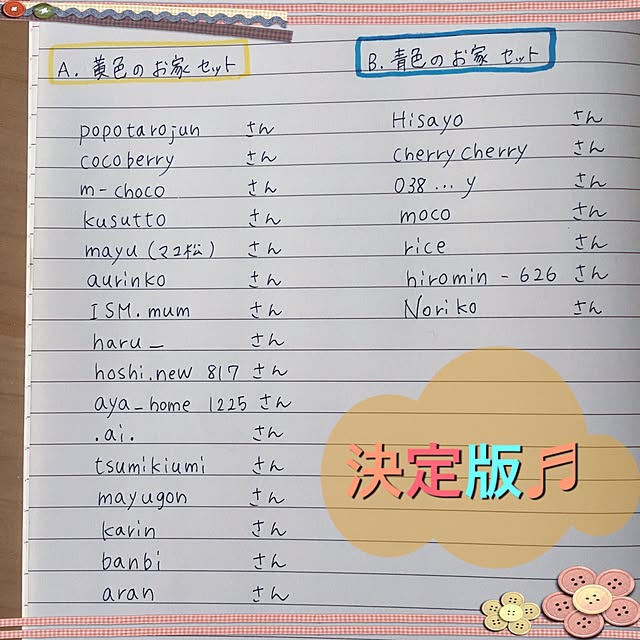 A. 黄色のお家セット
popotarojun さん
cocoberry さん
m-choco さん
kusutto さん
mayu (マユ松) さん
aurinko さん
ISM.mum さん
haru_ さん
hoshi.new 817 さん
aya_home 1225 さん
.ai. さん
tsumikiumi さん
mayugon さん
karin さん
banbi さん
aran さん
B. 青色のお家セット
Hisayo さん
cherrycherry さん
038...y さん
moco さん
rice さん
hiromin-626 さん
Noriko さん
決定版♬